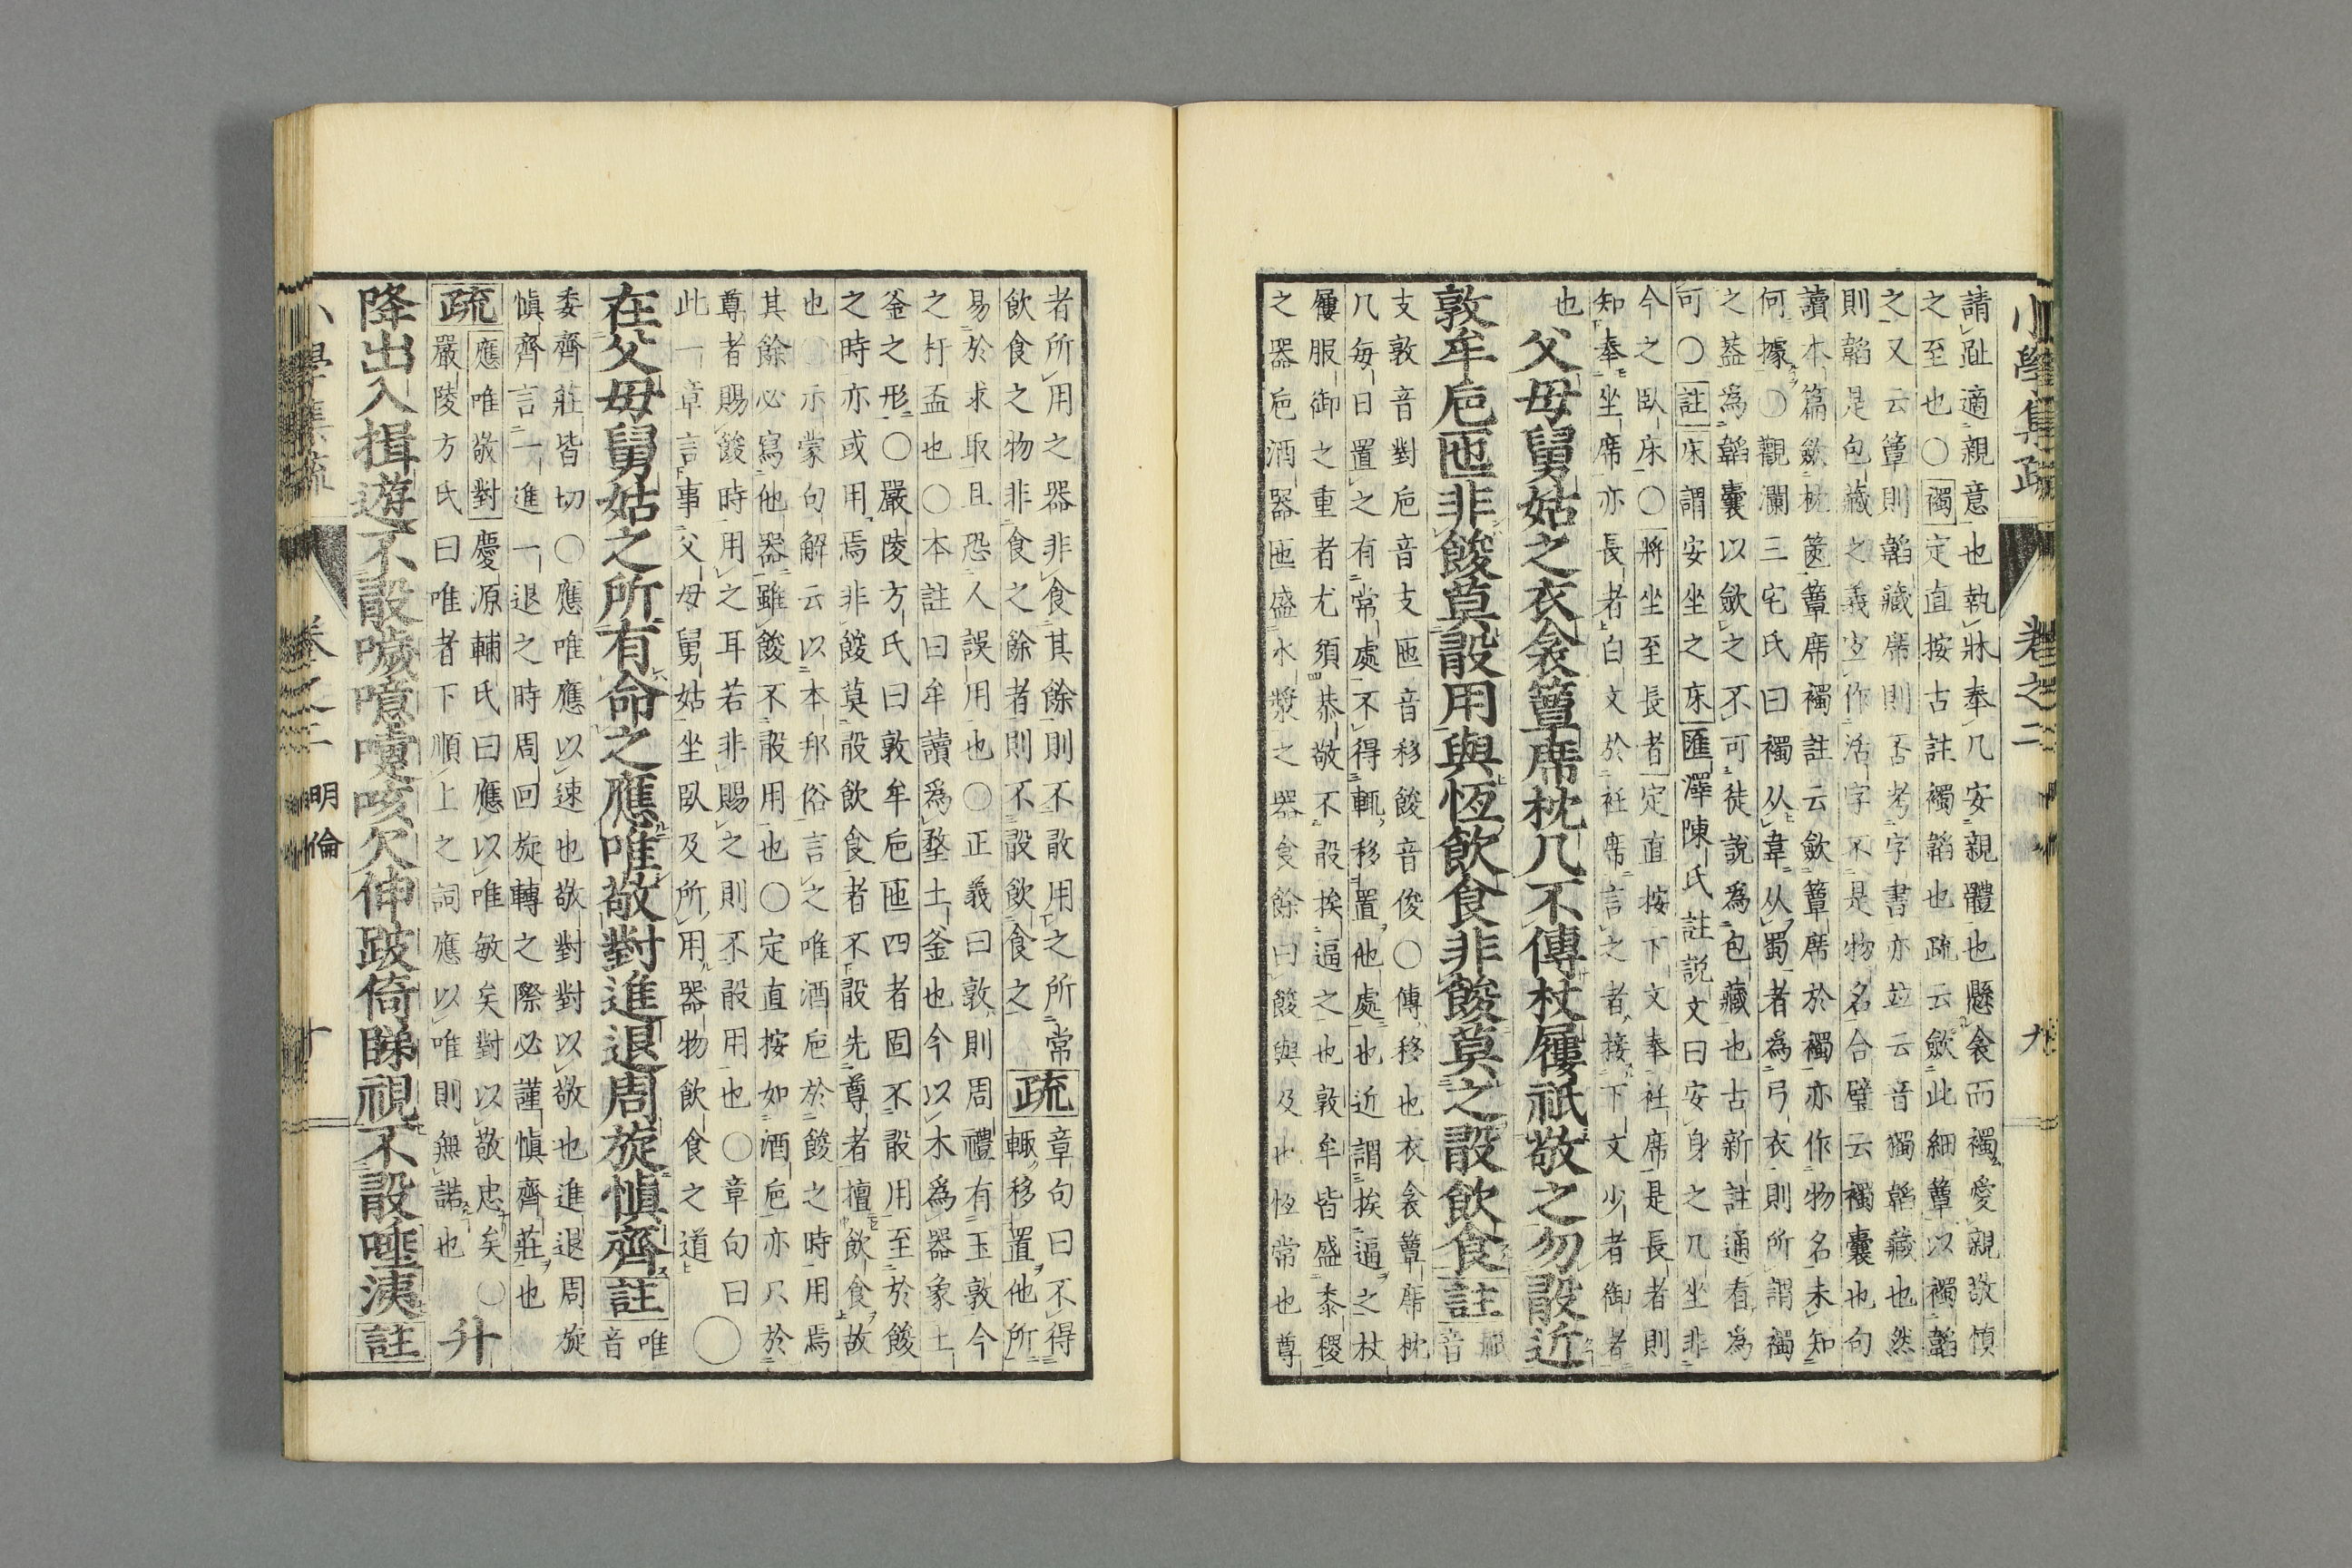 小學集疏 卷之二 九
請趾適親意也執牀奉几安親體也懸衾而襡愛親敬慎
之至也〇襡定直按古註襡韜也疏云斂此細簟以襡韜
之又云簟則韜藏席則否考字書亦竝云音獨韜藏也然
則韜是包藏之義宜作活字不是物名合璧云襡囊也句
讀本篇斂枕篋簟席襡註云斂簟席於襡亦作物名未知
何據〇觀瀾三宅氏曰襡从韋从蜀者為弓衣則所謂襡
之葢為韜囊以斂之不可徒說為包藏也古新註通看為
可〇註床謂安坐之床匯澤陳氏註説文曰安身之几坐非
今之臥床〇將坐至長者定直按下文奉衽席是長者則
知奉坐席亦長者白文於衽席言之者接下文少者御者
也
父母舅姑之衣衾簟席枕几不傳杖屨祇敬之勿敢近
敦牟巵匜非餕莫敢用與恆飲食非餕莫之敢飲食註音
支敦音對巵音支匜音移餕音俊〇傳移也衣衾簟席枕
几每日置之有常處不得輒移置他處也近謂挨逼之杖
屨服御之重者尤須恭敬不敢挨逼之也敦牟皆盛黍稷
之器巵酒器匜盛水漿之器食餘曰餕與及也恆常也尊
者所用之器非食其餘則不敢用之所常
飲食之物非食之餘者則不敢飲食之疏章句曰不得輒移置他所
易於求取且恐人誤用也〇正義曰敦則周禮有玉敦今
之杅盂也〇本註曰牟讀為堥土釜也今以木為器象土
釜之形〇嚴陵方氏曰敦牟巵匜四者固不敢用至於餕
之時亦或用焉非餕莫敢飲食者不敢先尊者擅飲食故
也〇示蒙句解云以本邦俗言之唯酒巵於餕之時用焉
其餘必寫他器雖餕不敢用也〇定直按如酒巵亦只於
尊者賜餕時用之耳若非賜之則不敢用也〇章句曰
此一章言事父母舅姑坐臥及所用器物飲食之道〇
在父母舅姑之所有命之應唯敬對進退周旋慎齊註唯音
委齊莊皆切〇應唯應以速也敬對對以敬也進退周旋
慎齊言一進一退之時周回旋轉之際必謹慎齊莊也
疏應唯敬對慶源輔氏曰應以唯敏矣對以敬忠矣〇
嚴陵方氏曰唯者下順上之詞應以唯則無諾也升
降出入揖遊不敢噦噫嚏咳欠伸跛倚睇視不敢唾洟註
小學集疏 卷之二 明倫 十